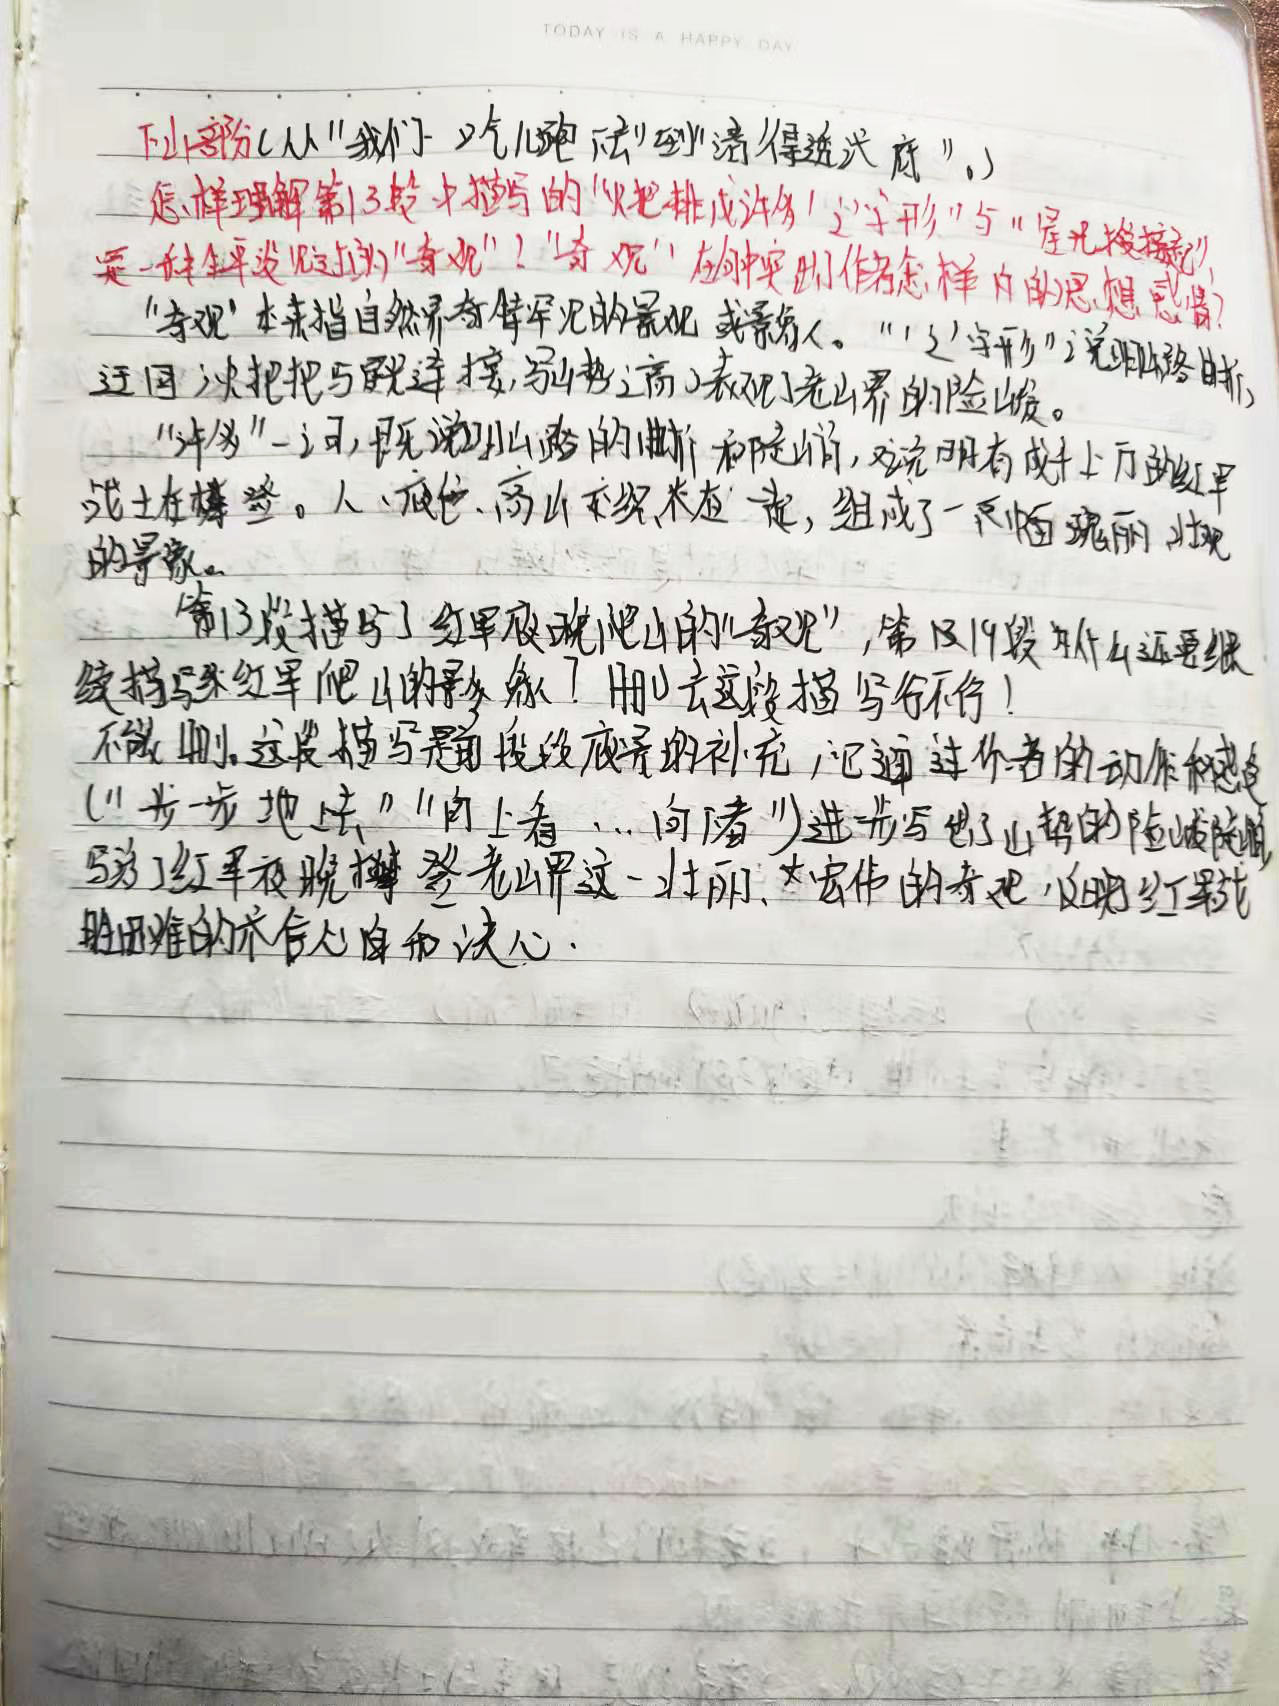 TODAY IS A HAPPY DAY
下山部份(从"我们一口气儿跑下去"到"清得透沏底"。)
怎样理解第13段中描写的"火把排成许多'之'字形"与"星光接接起",
是一种生平没见过的"奇观"?"奇观"在句中突出了作者怎样的思想感情?
"奇观"本来指自然界奇特罕见的景观或景象。"'之'字形"说明山路曲折,
迂回火把把与星光连接,写山势之高,表现了老山界的险峻。
"许多"一词,既说明山路的曲折和陡峭,又说明有成千上万的红军
战士在攀登。人、夜色、高山交织在一起,组成了一幅瑰丽壮观
的景象。
第13段描写了红军夜晚爬山的"奇观",第14段为什么还要继
续描写红军爬山的景象?删去这段描写行不行?
不能删。这段描写是前段夜景的补充,通过作者的动作和感受
("一步一步地上去""向上看…向下看")进一步写出了山势的险峻陡峭,
写了红军夜晚攀登老山界这一壮丽、宏伟的奇观,反映红军战
胜困难的信心和决心.